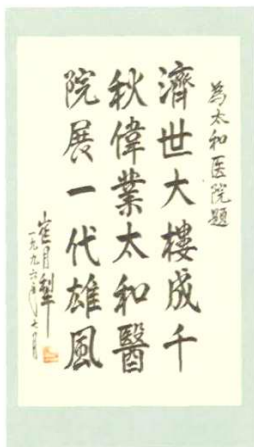 為太和医院題
濟世大樓成千
秋偉業太和醫
院展一代雄風
崔月犁
一九九六年七月